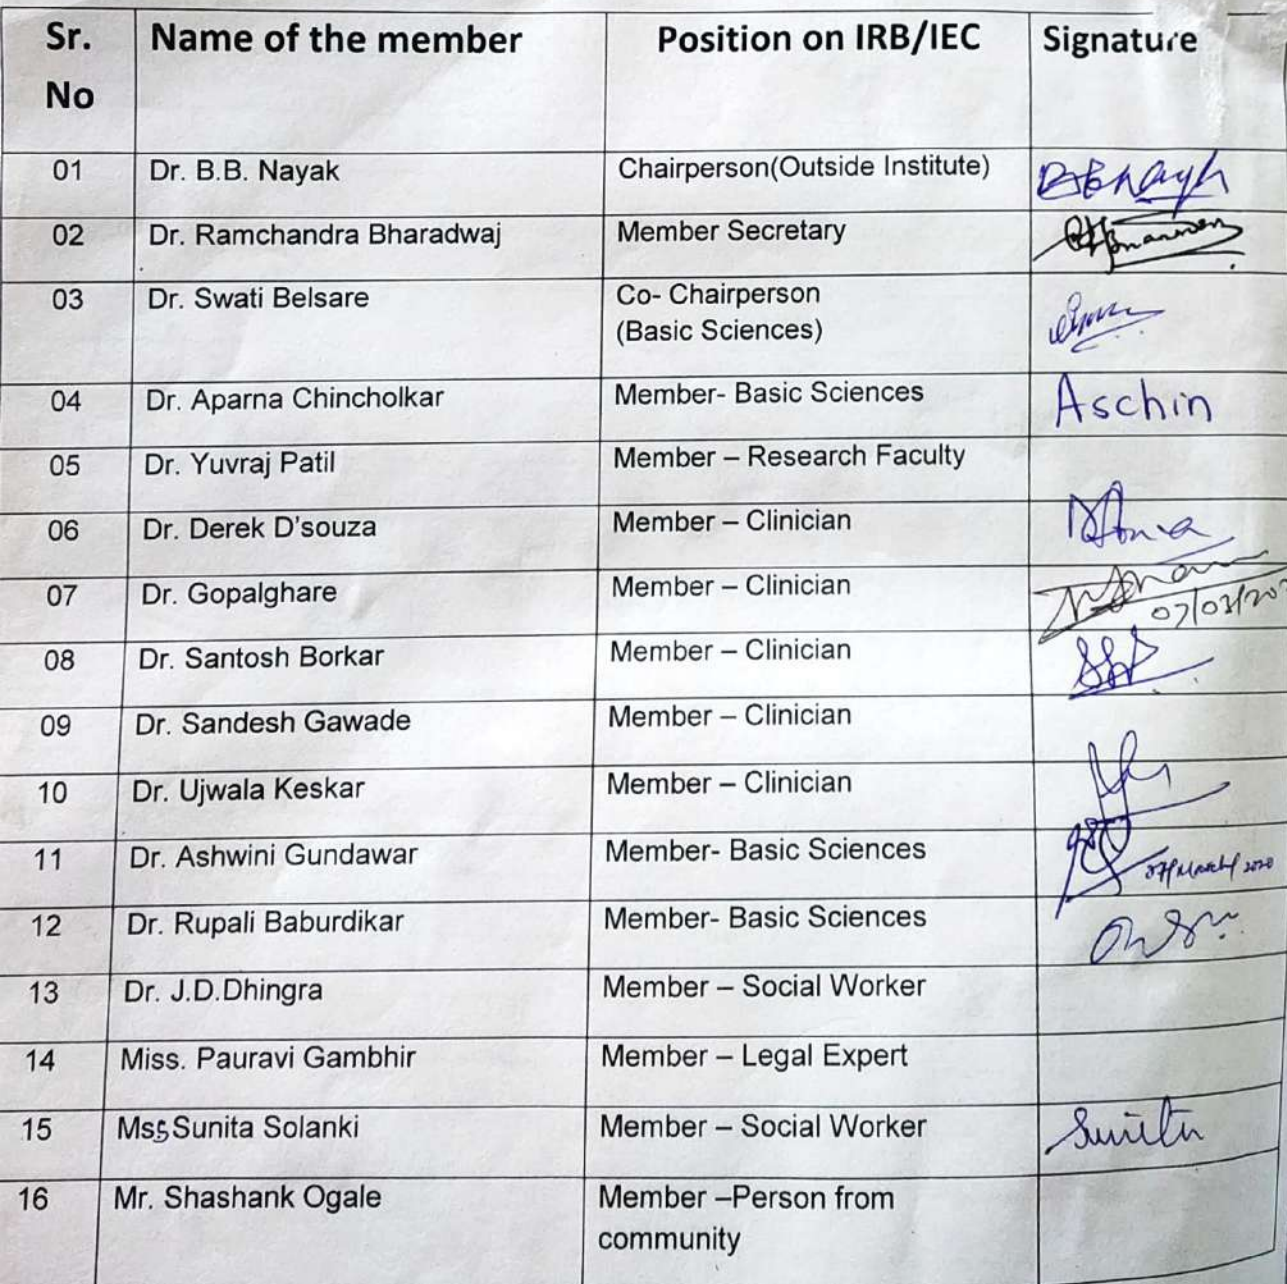 Sr. No Name of the member Position on IRB/IEC Signature
01 Dr. B.B. Nayak Chairperson(Outside Institute)
02 Dr. Ramchandra Bharadwaj Member Secretary
03 Dr. Swati Belsare Co- Chairperson
(Basic Sciences)
04 Dr. Aparna Chincholkar Member- Basic Sciences Aschin
05 Dr. Yuvraj Patil Member – Research Faculty
06 Dr. Derek D'souza Member – Clinician
07 Dr. Gopalghare Member – Clinician
07/03/20
08 Dr. Santosh Borkar Member – Clinician
09 Dr. Sandesh Gawade Member – Clinician
10 Dr. Ujwala Keskar Member – Clinician
11 Dr. Ashwini Gundawar Member- Basic Sciences
07/March/2020
12 Dr. Rupali Baburdikar Member- Basic Sciences
13 Dr. J.D.Dhingra Member – Social Worker
14 Miss. Pauravi Gambhir Member – Legal Expert
15 Mss Sunita Solanki Member – Social Worker Sunita
16 Mr. Shashank Ogale Member –Person from
community